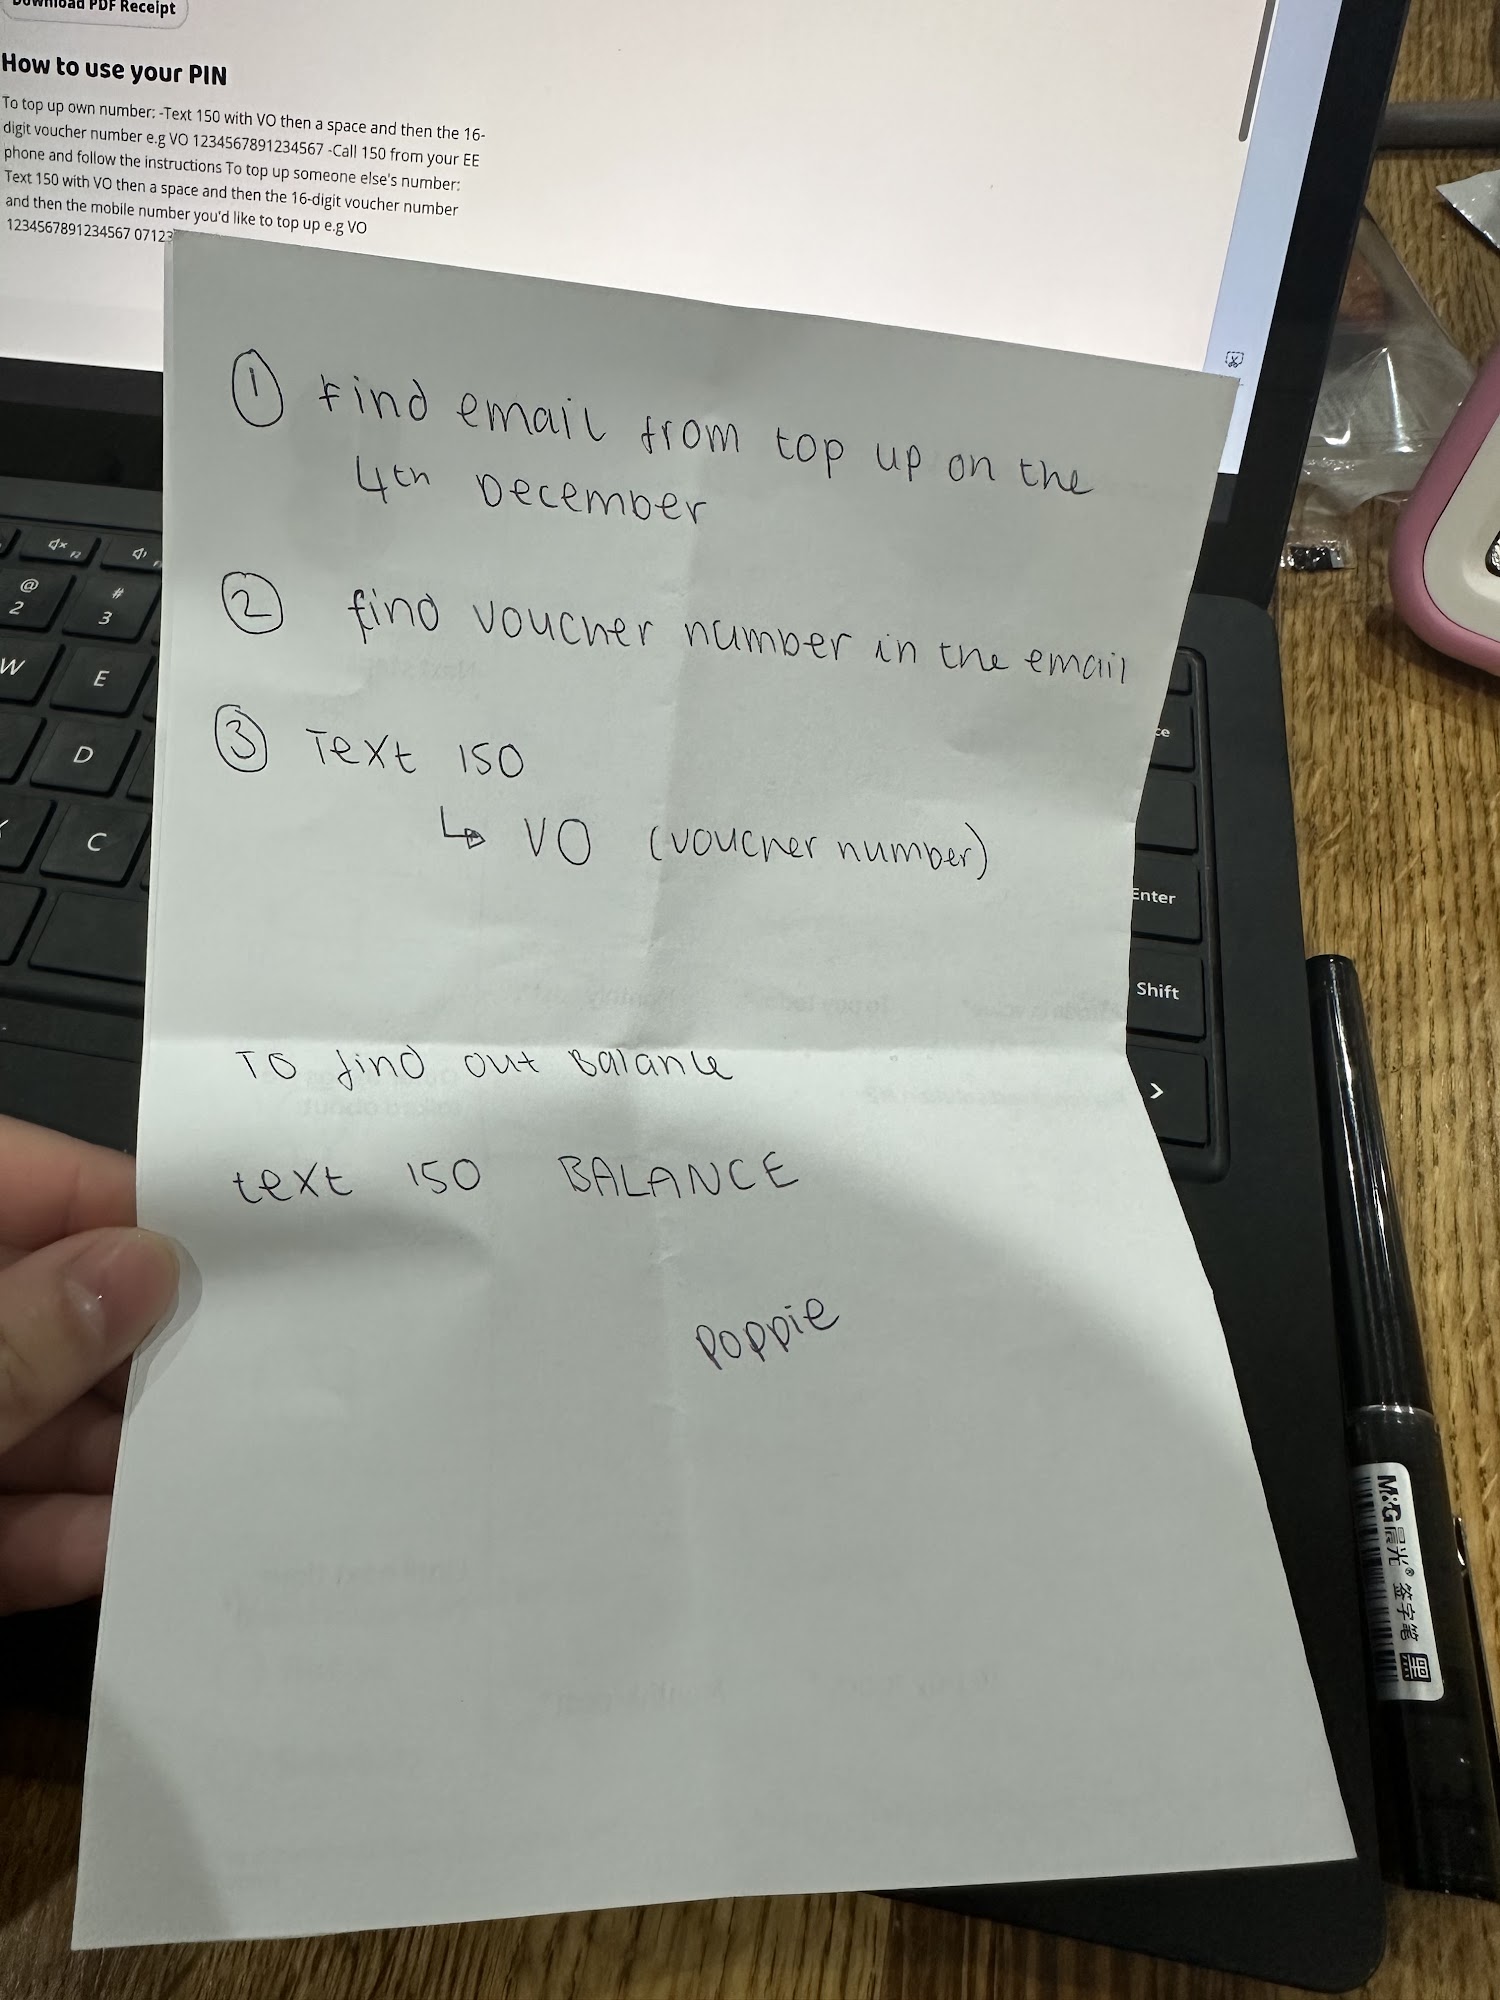 Download PDF Receipt
How to use your PIN
To top up own number: -Text 150 with VO then a space and then the 16-
digit voucher number e.g VO 1234567891234567 -Call 150 from your EE
phone and follow the instructions To top up someone else's number:
Text 150 with VO then a space and then the 16-digit voucher number
and then the mobile number you'd like to top up e.g VO
1234567891234567 07123
① Find email from top up on the
4th December
② find voucher number in the email
③ Text 150
↳ VO (voucher number)
To find out Balance
text 150 BALANCE
Poppie
F2
@
2
#
3
W
E
D
C
Enter
Shift
>
M&G晨光®
签字笔
黑